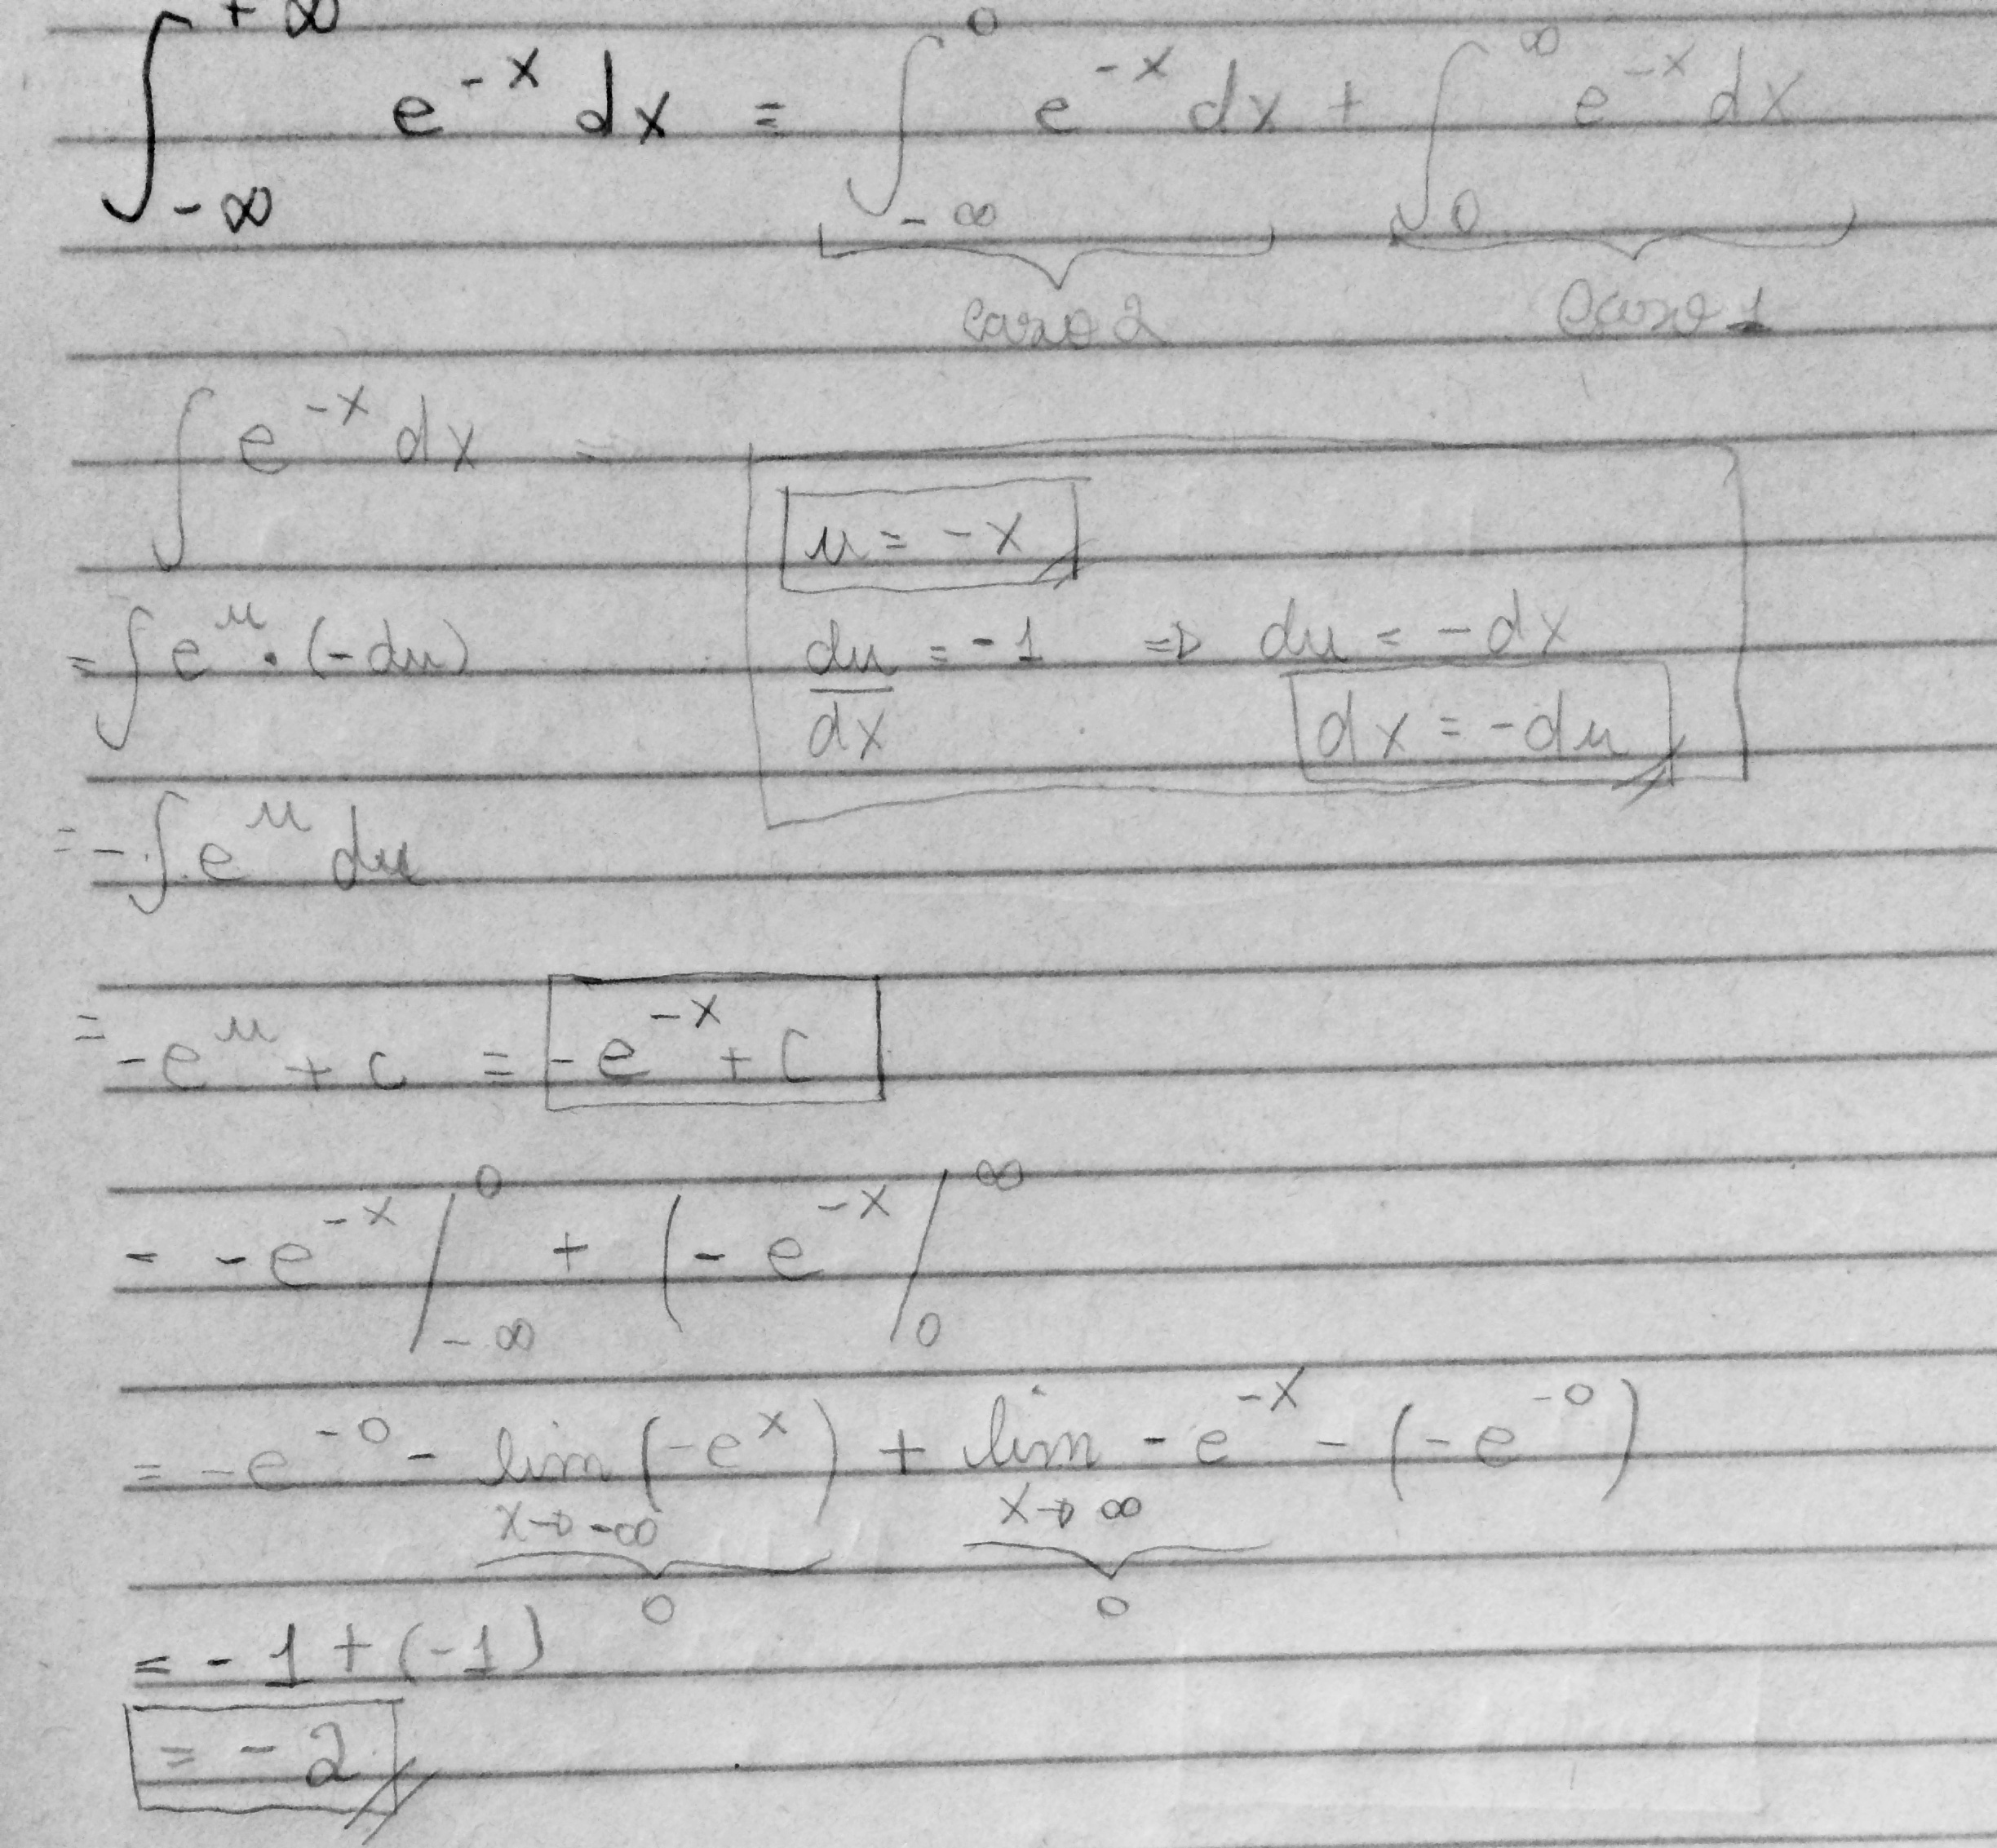 ∫_{-∞}^{+∞} e^{-x} dx = ∫_{-∞}^{0} e^{-x} dx + ∫_{0}^{∞} e^{-x} dx
caso 2 caso 1
∫ e^{-x} dx =
u = -x
= ∫ e^{u} · (-du)
du/dx = -1 ⇒ du = -dx
dx = -du
= -∫ e^{u} du
= -e^{u} + c = -e^{-x} + C
= -e^{-x} /_{-∞}^{0} + (-e^{-x} /_{0}^{∞}
= -e^{-0} - lim_{x→-∞} (-e^{x}) + lim_{x→∞} -e^{-x} - (-e^{-0})
0 0
= -1 + (-1)
= -2